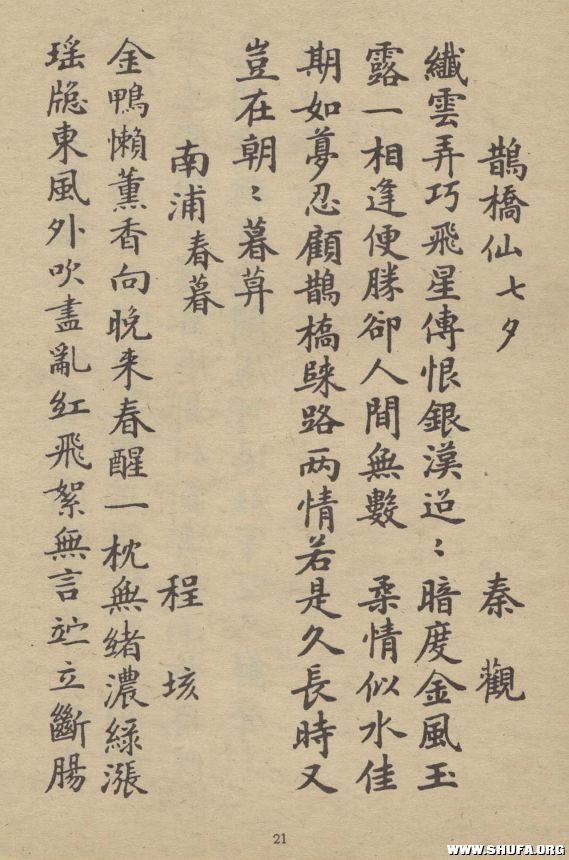 鵲橋仙 七夕 秦觀
纖雲弄巧飛星傳恨銀漢迢〻暗度金風玉
露一相逢便勝卻人間無數 柔情似水佳
期如夢忍顧鵲橋歸路两情若是久長時又
豈在朝〻暮
南浦 春暮 程垓
金鴨懶薰香向晚来春醒一枕無緒濃綠漲
瑤牕東風外吹盡亂紅飛絮無言竚立斷腸
21
WWW.SHUFA.ORG